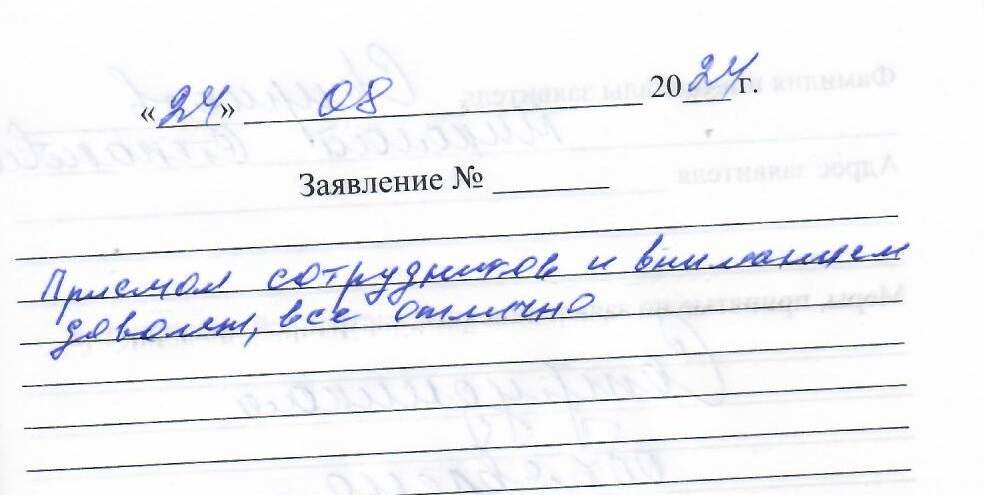 «24» 08 2024 г.
Заявление №
Приемом сотрудников и вниманием
доволен, все отлично